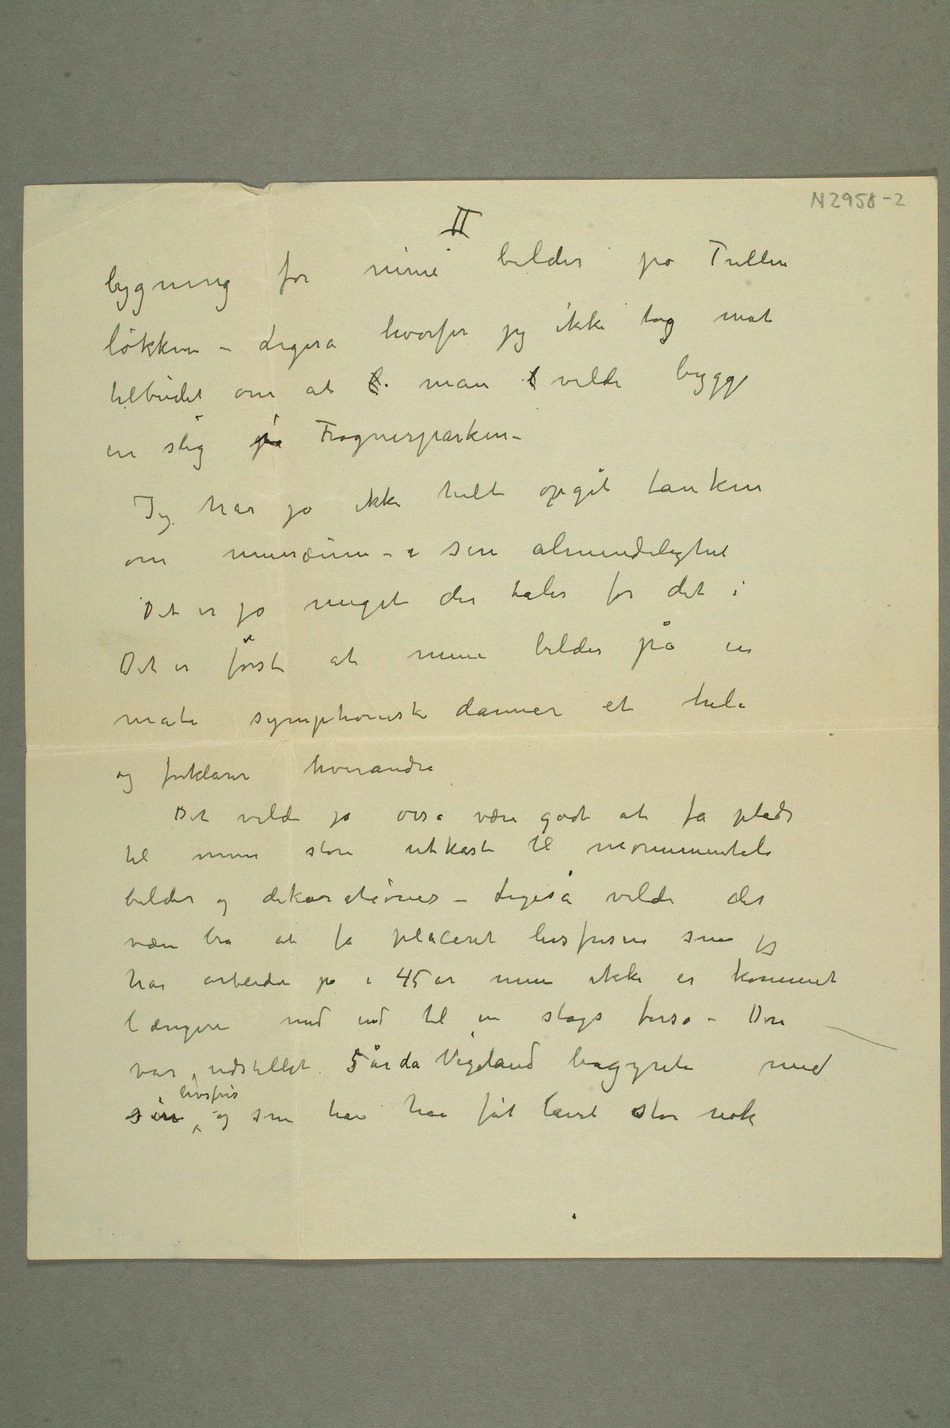 N2958-2
II
bygning for mine bilder på Tullin
løkken – Ligeså hvorfor jeg ikke tog mot
tilbudet om at man vilde bygge
en slig på Frognerparken –
Jeg har jo ikke helt opgit tanken
om musæum – i sin almindelighet
Det er jo meget der taler for det i
Det er først at mine bilder på en
måte symphonisk danner et hele
og forklarer hverandre
Det vilde jo osså være godt at få plads
til mine store utkast til monumentale
bilder og dekorationer – Ligeså vilde det
være bra at få placeret livsfrisen som jeg
har arbeidet på i 45 år men ikke er kommet
længere med end til en slags torso – Den
var udstillet 5 år da Vigeland begynte med
sin livsfris og som han har fåt lavet stor nok